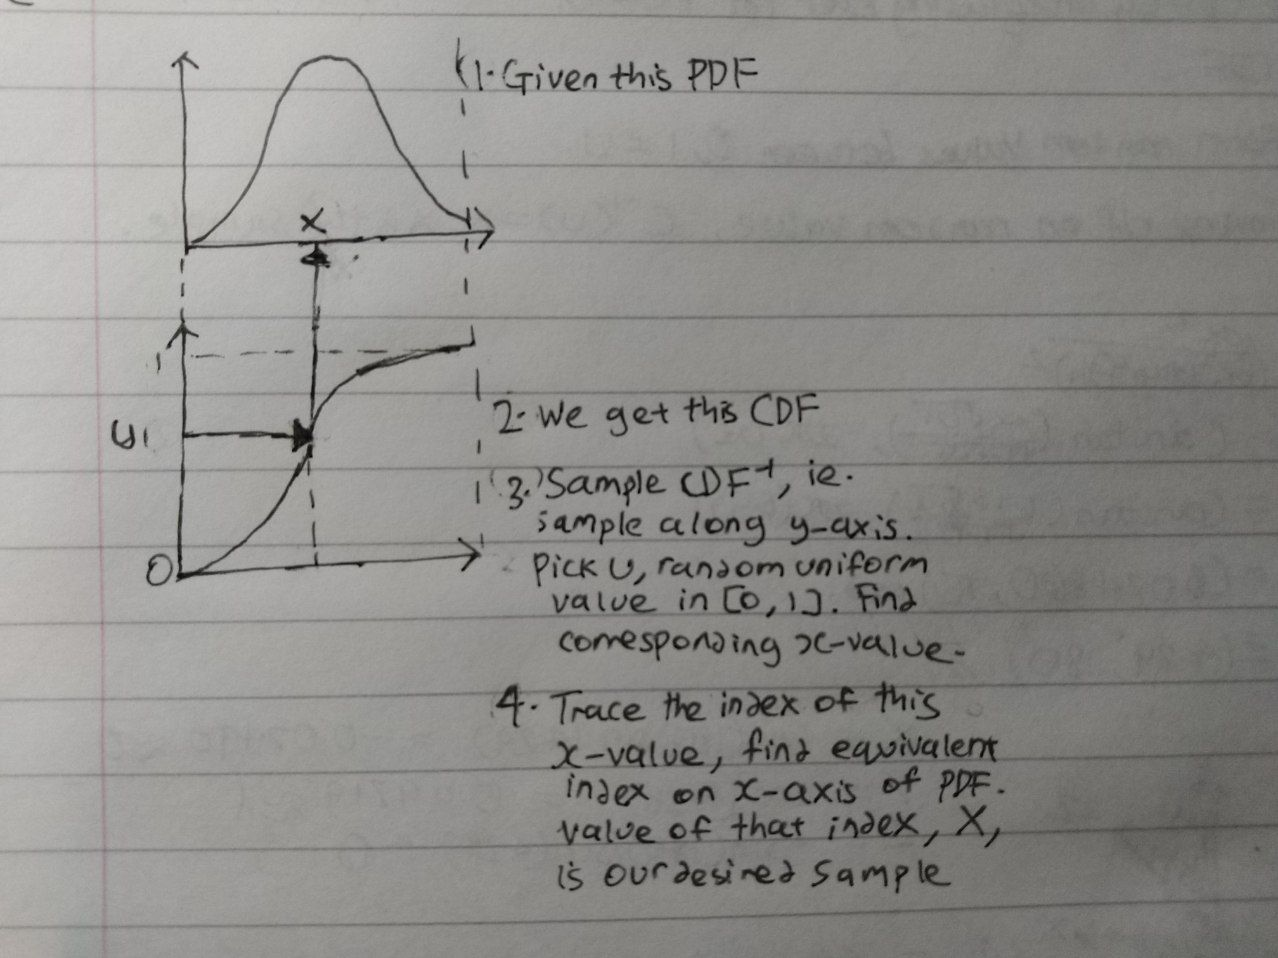 1. Given this PDF
X
1
U1
0
2. We get this CDF
(3.) Sample CDF⁻¹, ie.
sample along y-axis.
Pick U, random uniform
value in [0,1]. Find
corresponding x-value.
4. Trace the index of this
x-value, find equivalent
index on x-axis of PDF.
Value of that index, X,
is our desired sample